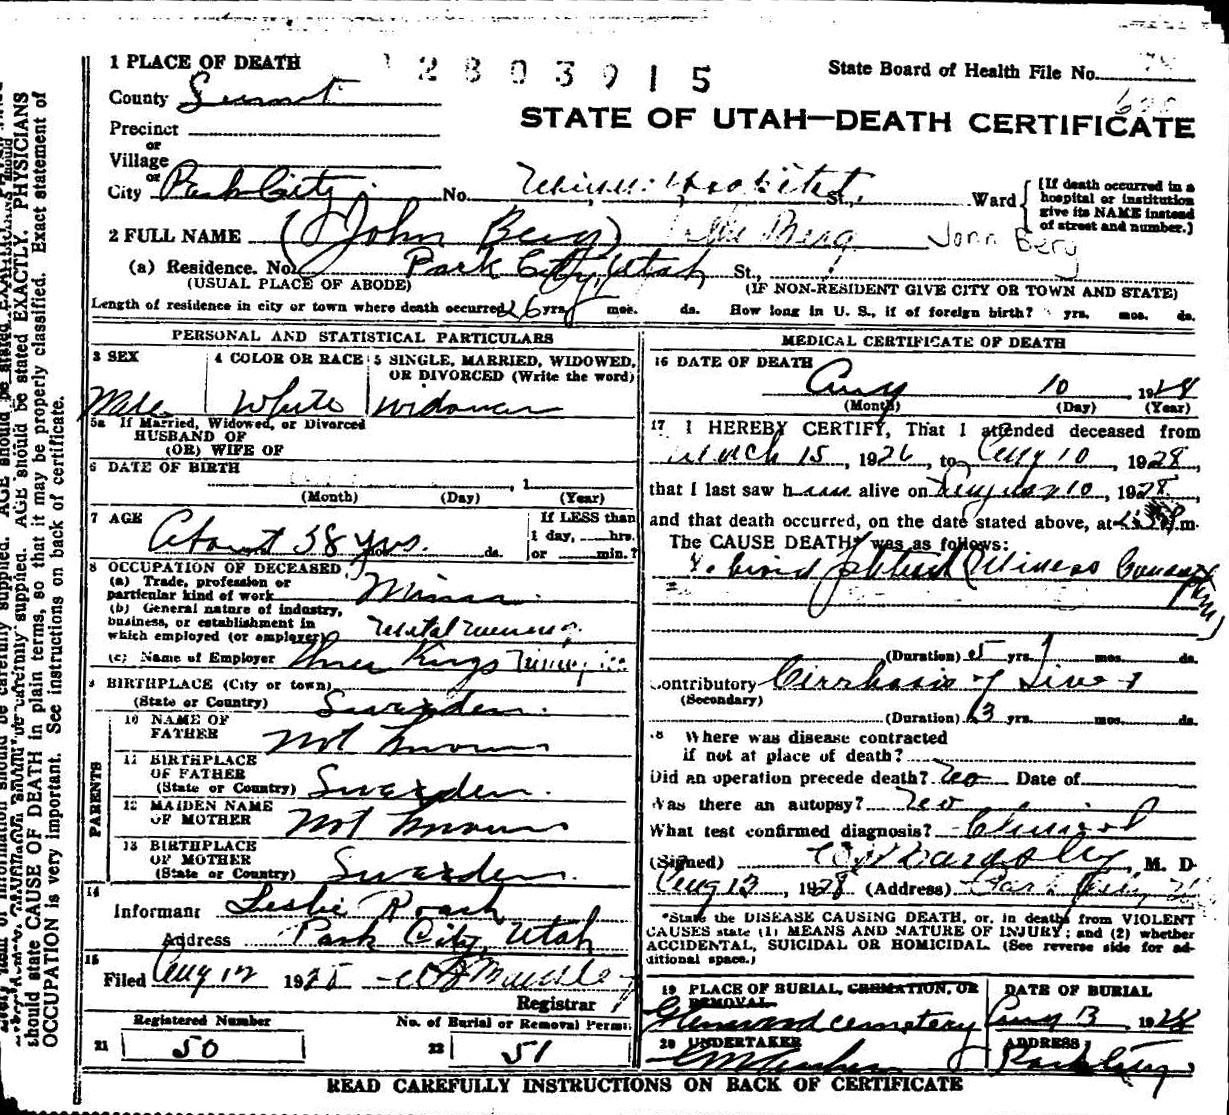 1 PLACE OF DEATH
2803915
State Board of Health File No.
County Summit
STATE OF UTAH—DEATH CERTIFICATE
Precinct
or
Village
or
City Park City. No. Miners Hospital St., Ward
(If death occurred in a hospital or institution give its NAME instead of street and number.)
2 FULL NAME (John Berg) Berg John Berg
(a) Residence. No. Park City, Utah St.,
(USUAL PLACE OF ABODE) (IF NON-RESIDENT GIVE CITY OR TOWN AND STATE)
Length of residence in city or town where death occurred 26 yrs. mos. ds. How long in U. S., if of foreign birth? yrs. mos. ds.
PERSONAL AND STATISTICAL PARTICULARS
3 SEX
Male
4 COLOR OR RACE
White
5 SINGLE, MARRIED, WIDOWED, OR DIVORCED (Write the word)
Widower
5a If Married, Widowed, or Divorced
HUSBAND OF
(OR) WIFE OF
6 DATE OF BIRTH
, 1
(Month) (Day) (Year)
7 AGE
About 58 yrs. ds.
If LESS than
1 day, hrs.
or min.?
8 OCCUPATION OF DECEASED
(a) Trade, profession or
particular kind of work Miner
(b) General nature of industry,
business, or establishment in
which employed (or employer) Metal mining
(c) Name of Employer Three Kings Mining Co
9 BIRTHPLACE (City or town)
(State or Country) Sweden.
PARENTS
10 NAME OF
FATHER Not Known
11 BIRTHPLACE
OF FATHER
(State or Country) Sweden.
12 MAIDEN NAME
OF MOTHER Not Known
13 BIRTHPLACE
OF MOTHER
(State or Country) Sweden
14
Informant Leslie Roach
Address Park City, Utah
15
Filed Aug 12 192
Registrar
Registered Number
21 50
No. of Burial or Removal Permit
22 51
MEDICAL CERTIFICATE OF DEATH
16 DATE OF DEATH
Aug 10 1928
(Month) (Day) (Year)
17 I HEREBY CERTIFY, That I attended deceased from
March 15, 1926, to Aug 10, 1928,
that I last saw him alive on August 10, 1928,
and that death occurred, on the date stated above, at m.
The CAUSE DEATH* was as follows:
Fibroid Miners Consumption
(Duration) 5 yrs. mos. ds.
Contributory Cirrhosis of Liver
(Secondary)
(Duration) 3 yrs. mos. ds.
18 Where was disease contracted
if not at place of death?
Did an operation precede death? No Date of
Was there an autopsy? No
What test confirmed diagnosis? Clinical
(Signed) M. D
Aug 13, 1928 (Address) Park City,
*State the DISEASE CAUSING DEATH, or, in deaths from VIOLENT
CAUSES state (1) MEANS AND NATURE OF INJURY; and (2) whether
ACCIDENTAL, SUICIDAL OR HOMICIDAL. (See reverse side for ad-
ditional space.)
19 PLACE OF BURIAL, CREMATION, OR
REMOVAL
Glenwood Cemetery
DATE OF BURIAL
Aug 13 1928
20 UNDERTAKER
ADDRESS
Park City
READ CAREFULLY INSTRUCTIONS ON BACK OF CERTIFICATE
should state CAUSE OF DEATH in plain terms, so that it may be properly classified. Exact statement of
OCCUPATION is very important. See instructions on back of certificate.